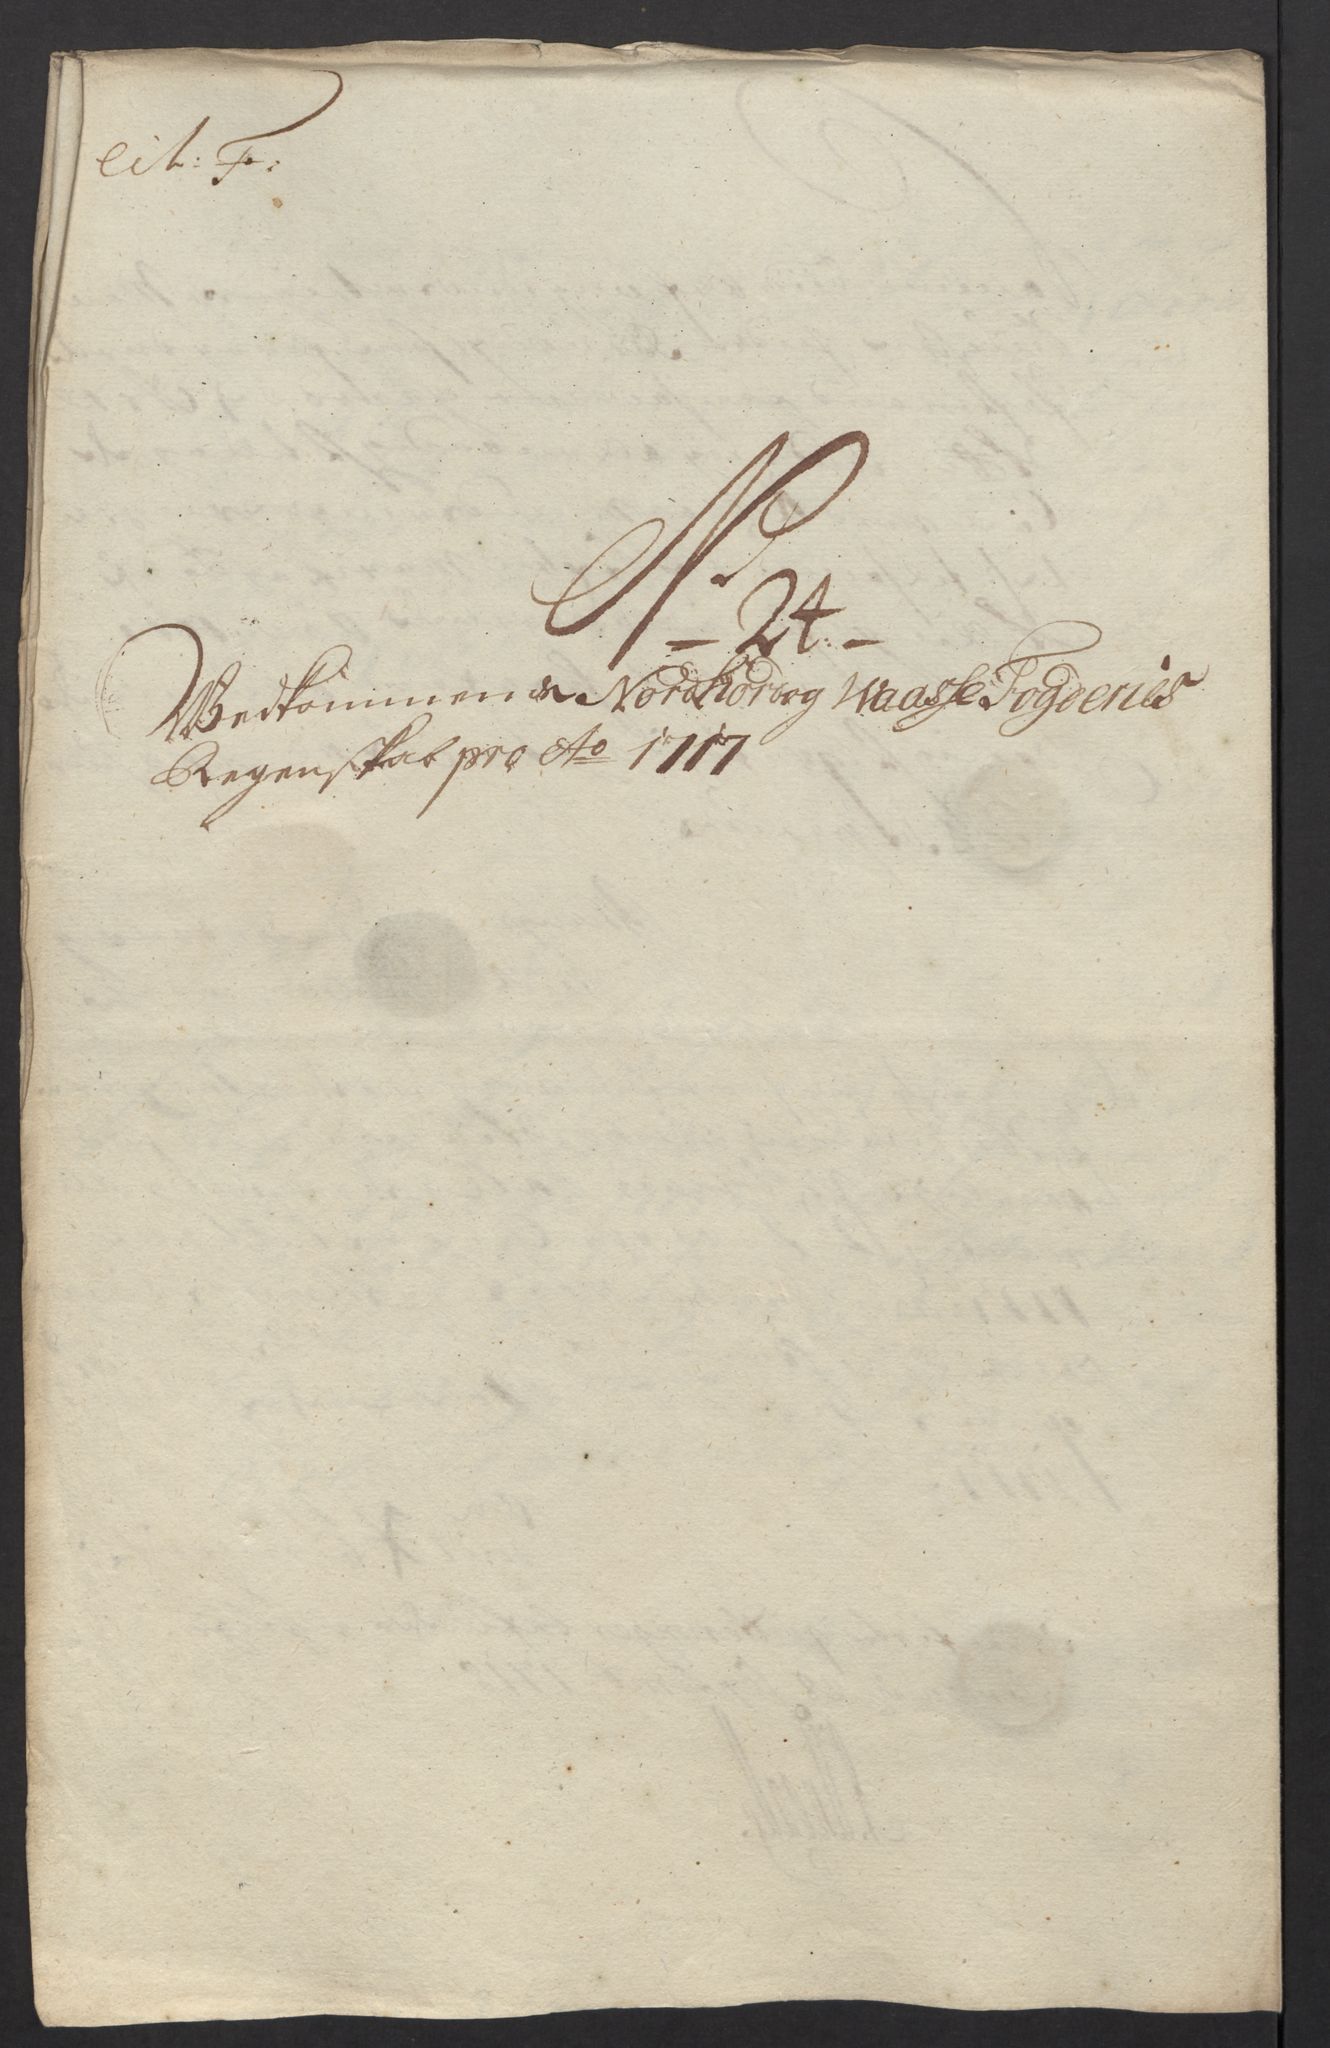 Lit: F:
No
- 24. -
Vedkommende Nordhor og Waasse Fogderies
Regenskab pro Ao 1717